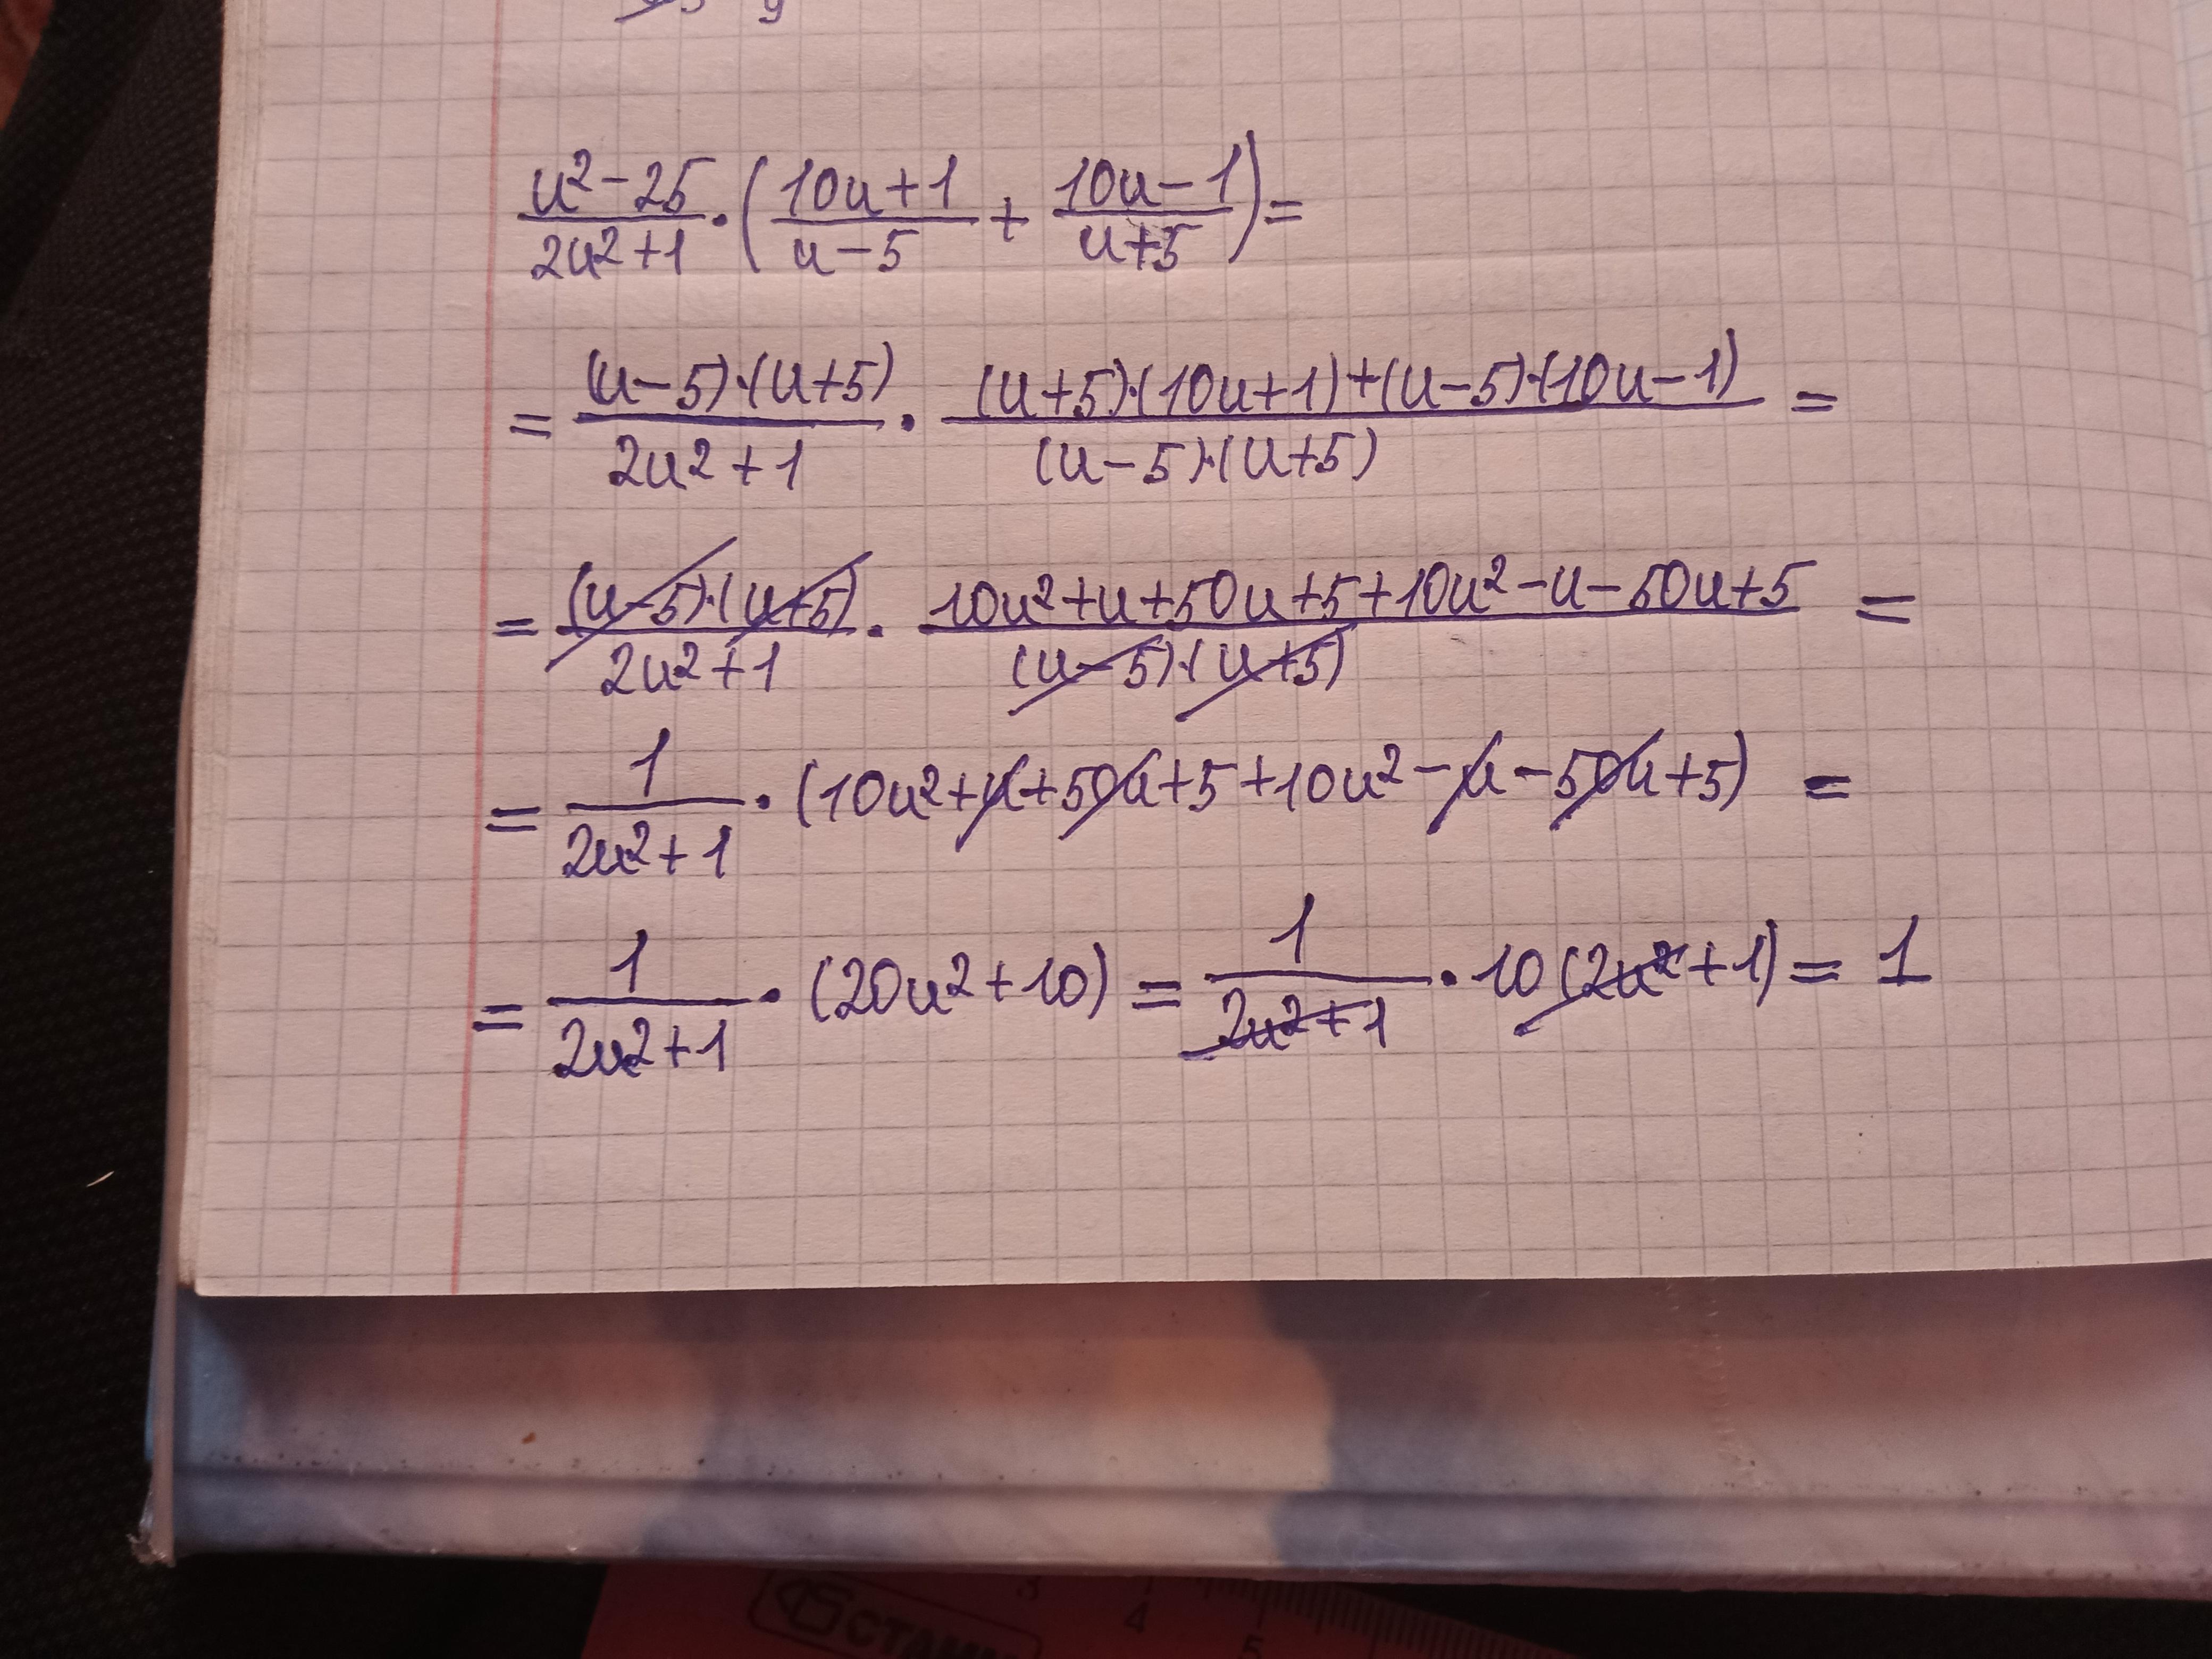 (u² − 25)/(2u² + 1) · ((10u + 1)/(u − 5) + (10u − 1)/(u + 5)) =
= ((u − 5)·(u + 5))/(2u² + 1) · ((u + 5)·(10u + 1) + (u − 5)·(10u − 1))/((u − 5)·(u + 5)) =
= ((u − 5)·(u + 5))/(2u² + 1) · (10u² + u + 50u + 5 + 10u² − u − 50u + 5)/((u − 5)·(u + 5)) =
= 1/(2u² + 1) · (10u² + u + 50u + 5 + 10u² − u − 50u + 5) =
= 1/(2u² + 1) · (20u² + 10) = 1/(2u² + 1) · 10(2u² + 1) = 1
3 4 5